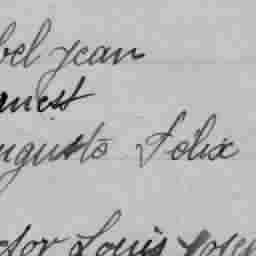 bel Jean
nest
ugusto Felix
dor Louis